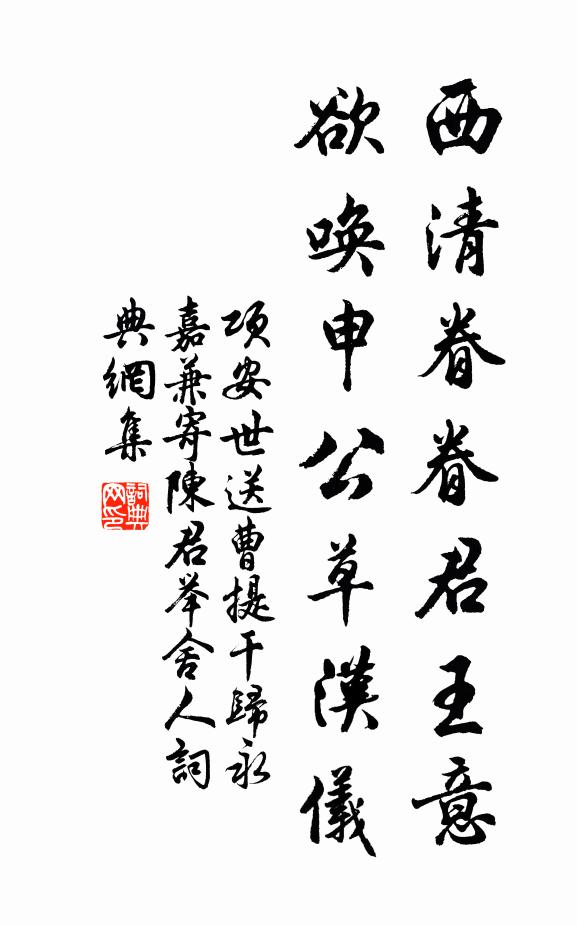 西清眷眷君王意
欲喚申公草漢儀
項安世送曹提干歸永
嘉兼寄陳君举舍人詞
典網集
詞典网印